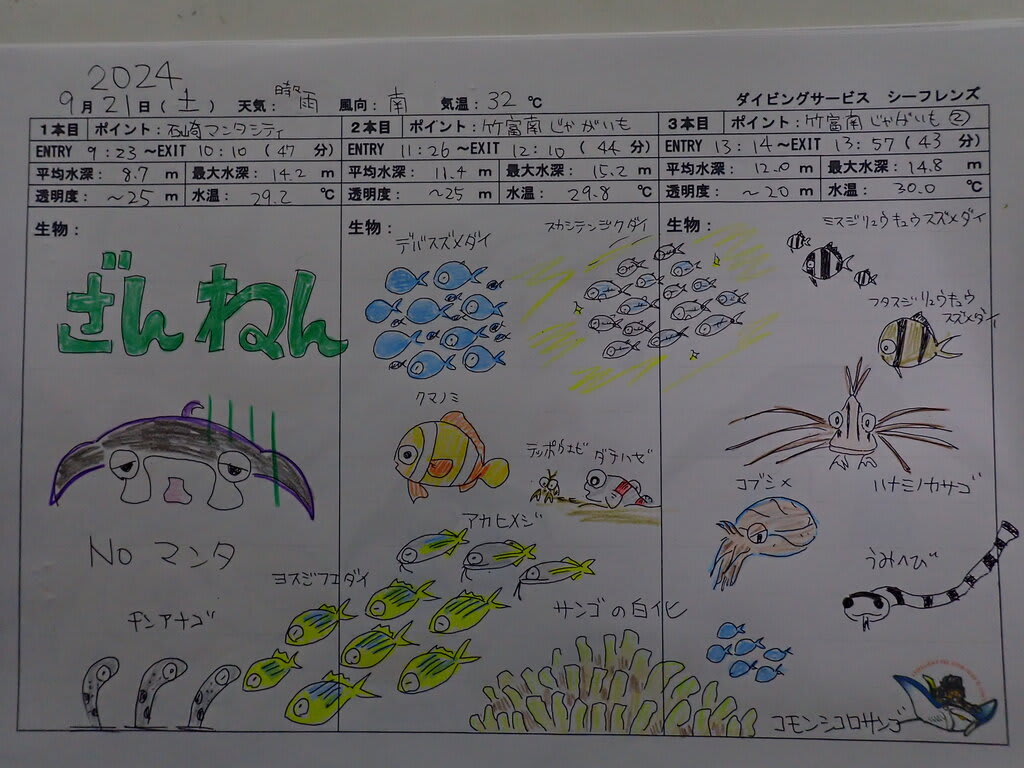 2024
9月21日(土) 天気: 時々雨 風向: 南 気温: 32 ℃ ダイビングサービス シーフレンズ
1本目 ポイント: 石崎マンタシティ 2本目 ポイント: 竹富南じゃがいも 3本目 ポイント: 竹富南じゃがいも②
ENTRY 9:23 ~EXIT 10:10 (47 分) ENTRY 11:26 ~EXIT 12:10 (44 分) ENTRY 13:14 ~EXIT 13:57 (43 分)
平均水深: 8.7 m 最大水深: 14.2 m 平均水深: 11.4 m 最大水深: 15.2 m 平均水深: 12.0 m 最大水深: 14.8 m
透明度: ~25 m 水温: 29.2 ℃ 透明度: ~25 m 水温: 29.8 ℃ 透明度: ~20 m 水温: 30.0 ℃
生物: 生物: 生物:
ざんねん
No マンタ
チンアナゴ
デバスズメダイ
スカシテンジクダイ
クマノミ
テッポウエビ ダテハゼ
アカヒメジ
ヨスジフエダイ
サンゴの白化
ミスジリュウキュウスズメダイ
フタスジリュウキュウ
スズメダイ
ハナミノカサゴ
コブシメ
うみへび
コモンシコロサンゴ